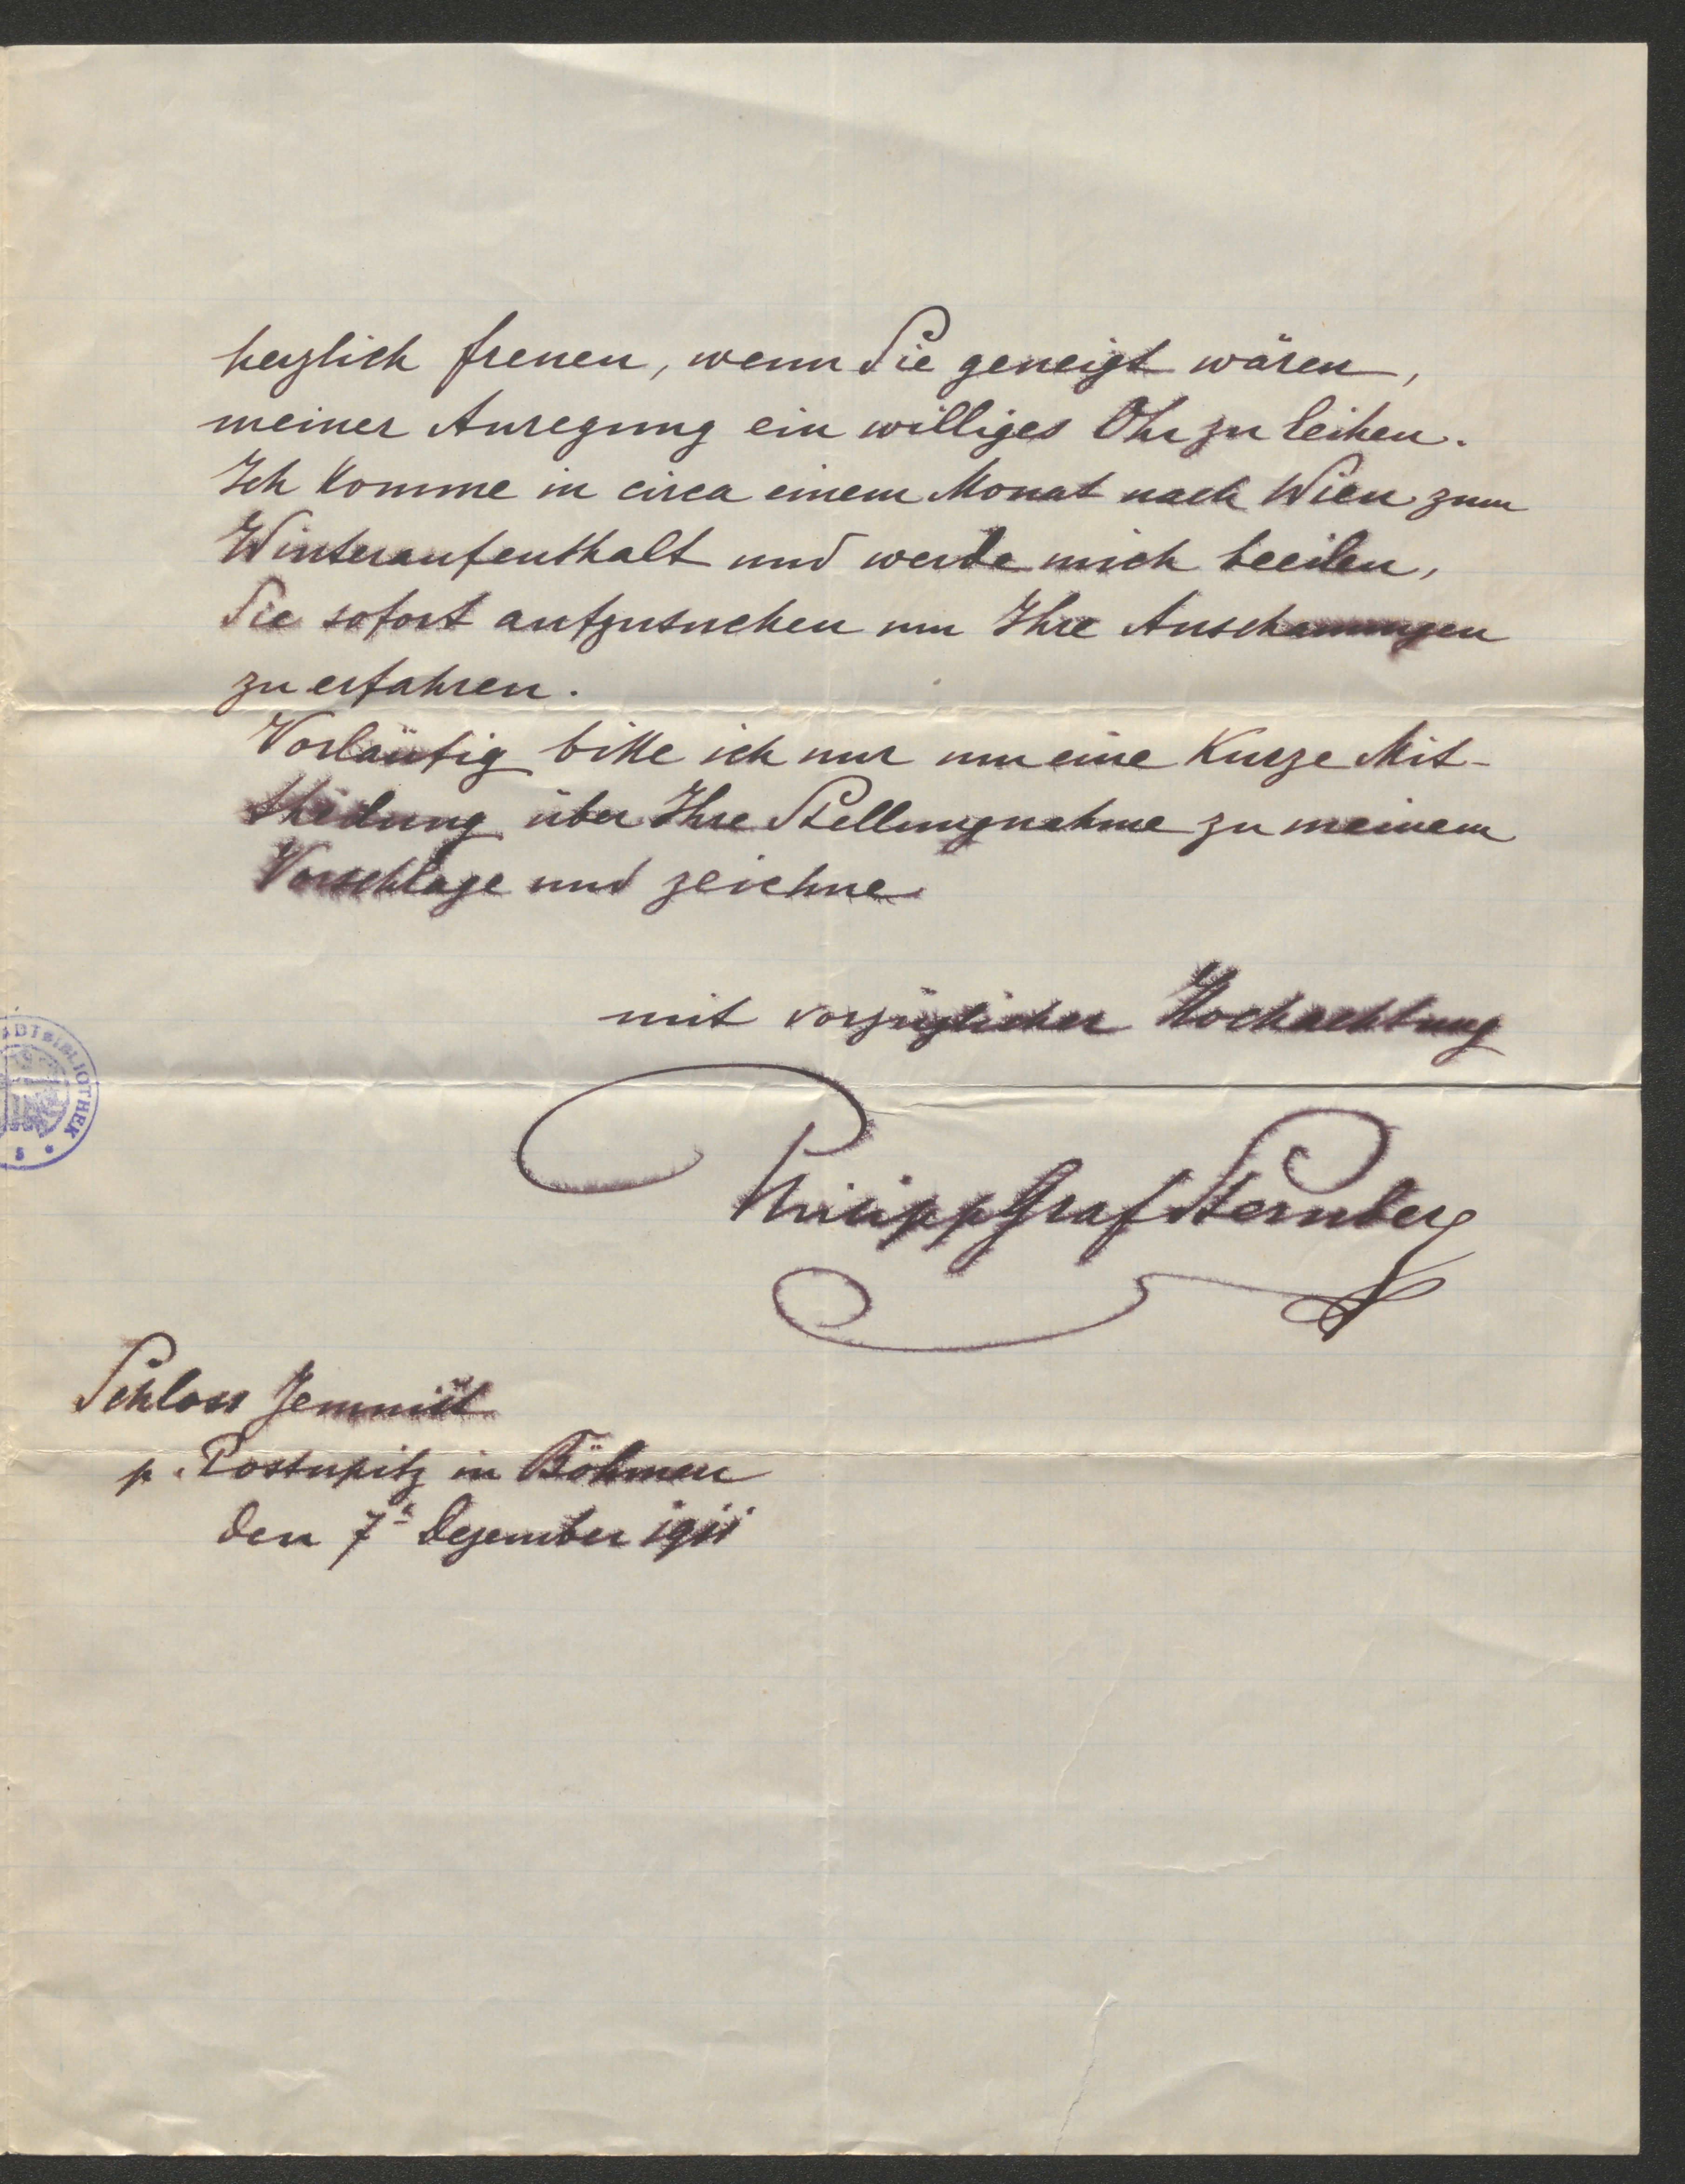 herzlich freuen, wenn Sie geneigt wären,
meiner Anregung ein williges Ohr zu leihen.
Ich komme in circa einem Monat nach Wien zum
Winteraufenthalt und werde mich beeilen,
Sie sofort aufzusuchen um Ihre Anschauungen
zu erfahren.
Vorläufig bitte ich nur um eine kurze Mit-
theilung über Ihre Stellungnahme zu meinem
Vorschlage und zeichne
mit vorzüglicher Hochachtung
ADTBIBLIOTHEK
Philipp Graf Sternberg
Schloss Jemništ
p. Postupitz in Böhmen
den 7t Dezember 1911